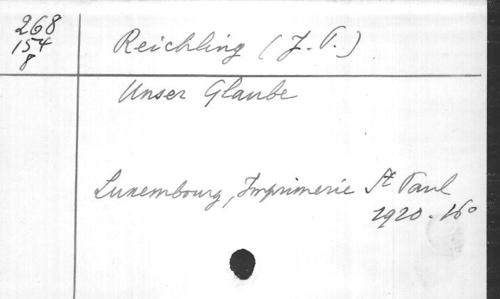 268
154
8
Reichling (J. P.)
Unser Glaube
Luxembourg, Imprimerie St Paul
1920. 16°